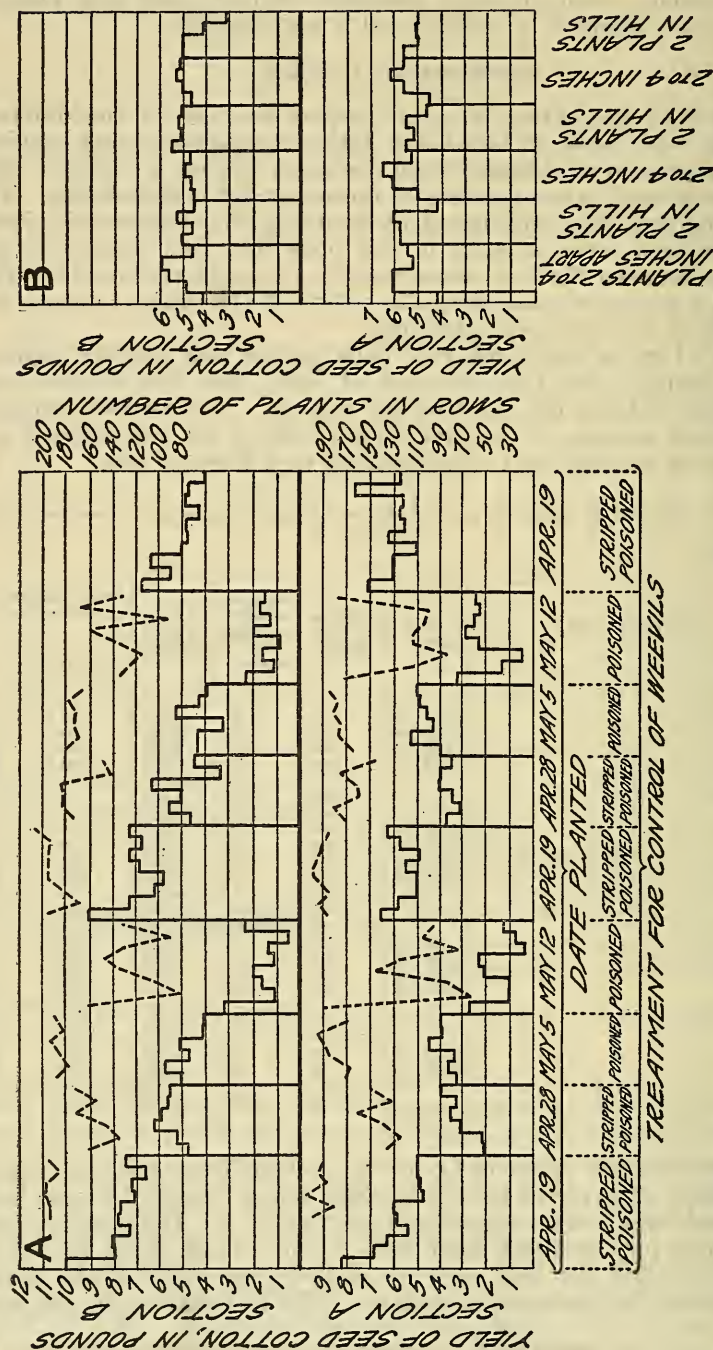 A
12
11
10
9
8
7
6
5
4
3
2
1
YIELD OF SEED COTTON, IN POUNDS
SECTION B
9
8
7
6
5
4
3
2
1
SECTION A
NUMBER OF PLANTS IN ROWS
200
180
160
140
120
100
80
190
170
150
130
110
90
70
50
30
APR. 19 APR. 28 MAY 5 MAY 12 APR. 19 APR. 28 MAY 5 MAY 12 APR. 19
DATE PLANTED
STRIPPED STRIPPED POISONED POISONED STRIPPED STRIPPED POISONED POISONED STRIPPED
POISONED POISONED POISONED POISONED POISONED
TREATMENT FOR CONTROL OF WEEVILS
B
6
5
4
3
2
1
YIELD OF SEED COTTON, IN POUNDS
SECTION B
7
6
5
4
3
2
1
SECTION A
PLANTS 2 TO 4
INCHES APART
2 PLANTS
IN HILLS
2 TO 4 INCHES
2 PLANTS
IN HILLS
2 TO 4 INCHES
2 PLANTS
IN HILLS